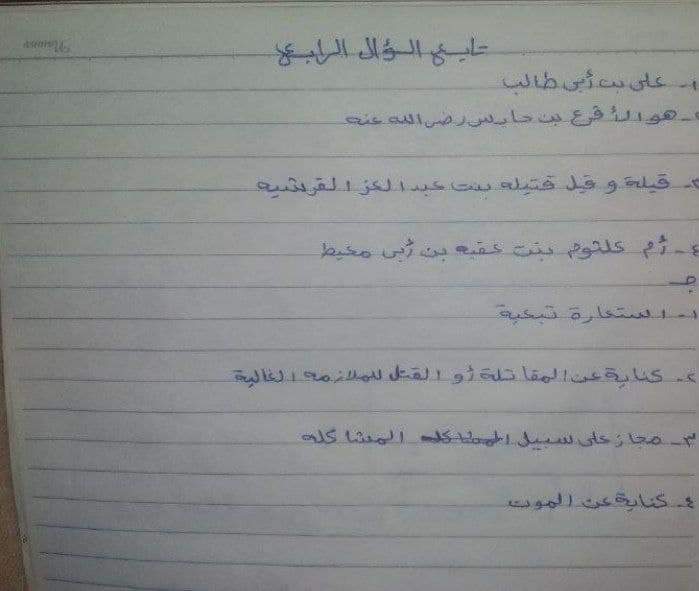 تابع السؤال الرابع
١- على بن أبى طالب
٢- هو الأقرع بن حابس رضى الله عنه
٣- قيلة وقيل قتيله بنت عبد العز القرشيه
٤- أم كلثوم بنت عقبه بن أبى معيط
جـ
١- استعارة تبعية
٢- كناية عن المقاتلة أو القتل للملازمه الغالية
٣- مجاز على سبيل المشاكله
٤- كناية عن الموت